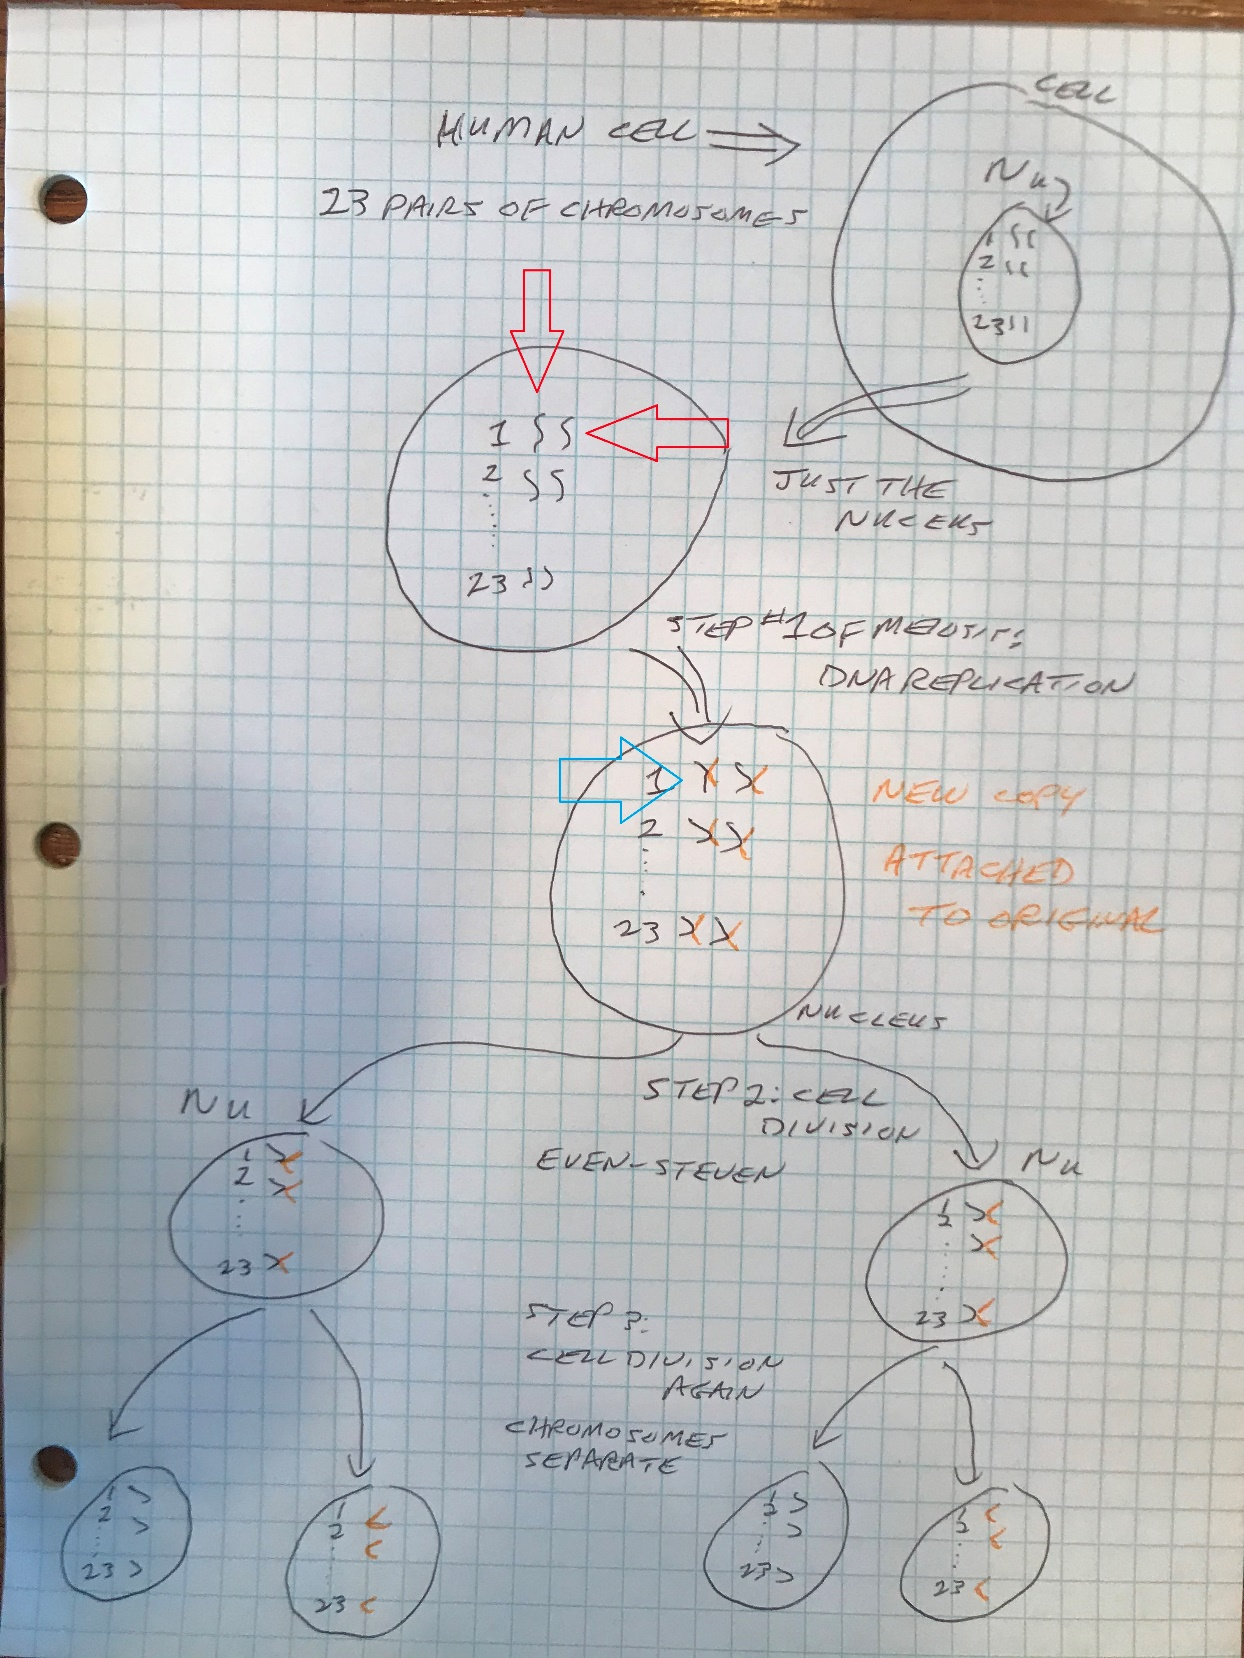 CELL
HUMAN CELL
Nu
23 PAIRS OF CHROMOSOMES
1
2
23
1
2
23
JUST THE
NUCEUS
STEP #1 OF MEIOSIS:
DNA REPLICATION
1
2
23
NEW COPY
ATTACHED
TO ORIGINAL
NUCLEUS
STEP 2: CELL
DIVISION
EVEN-STEVEN
Nu
1
2
23
Nu
1
2
23
STEP 3:
CELL DIVISION
AGAIN
CHROMOSOMES
SEPARATE
1
2
23
1
2
23
1
2
23
1
2
23